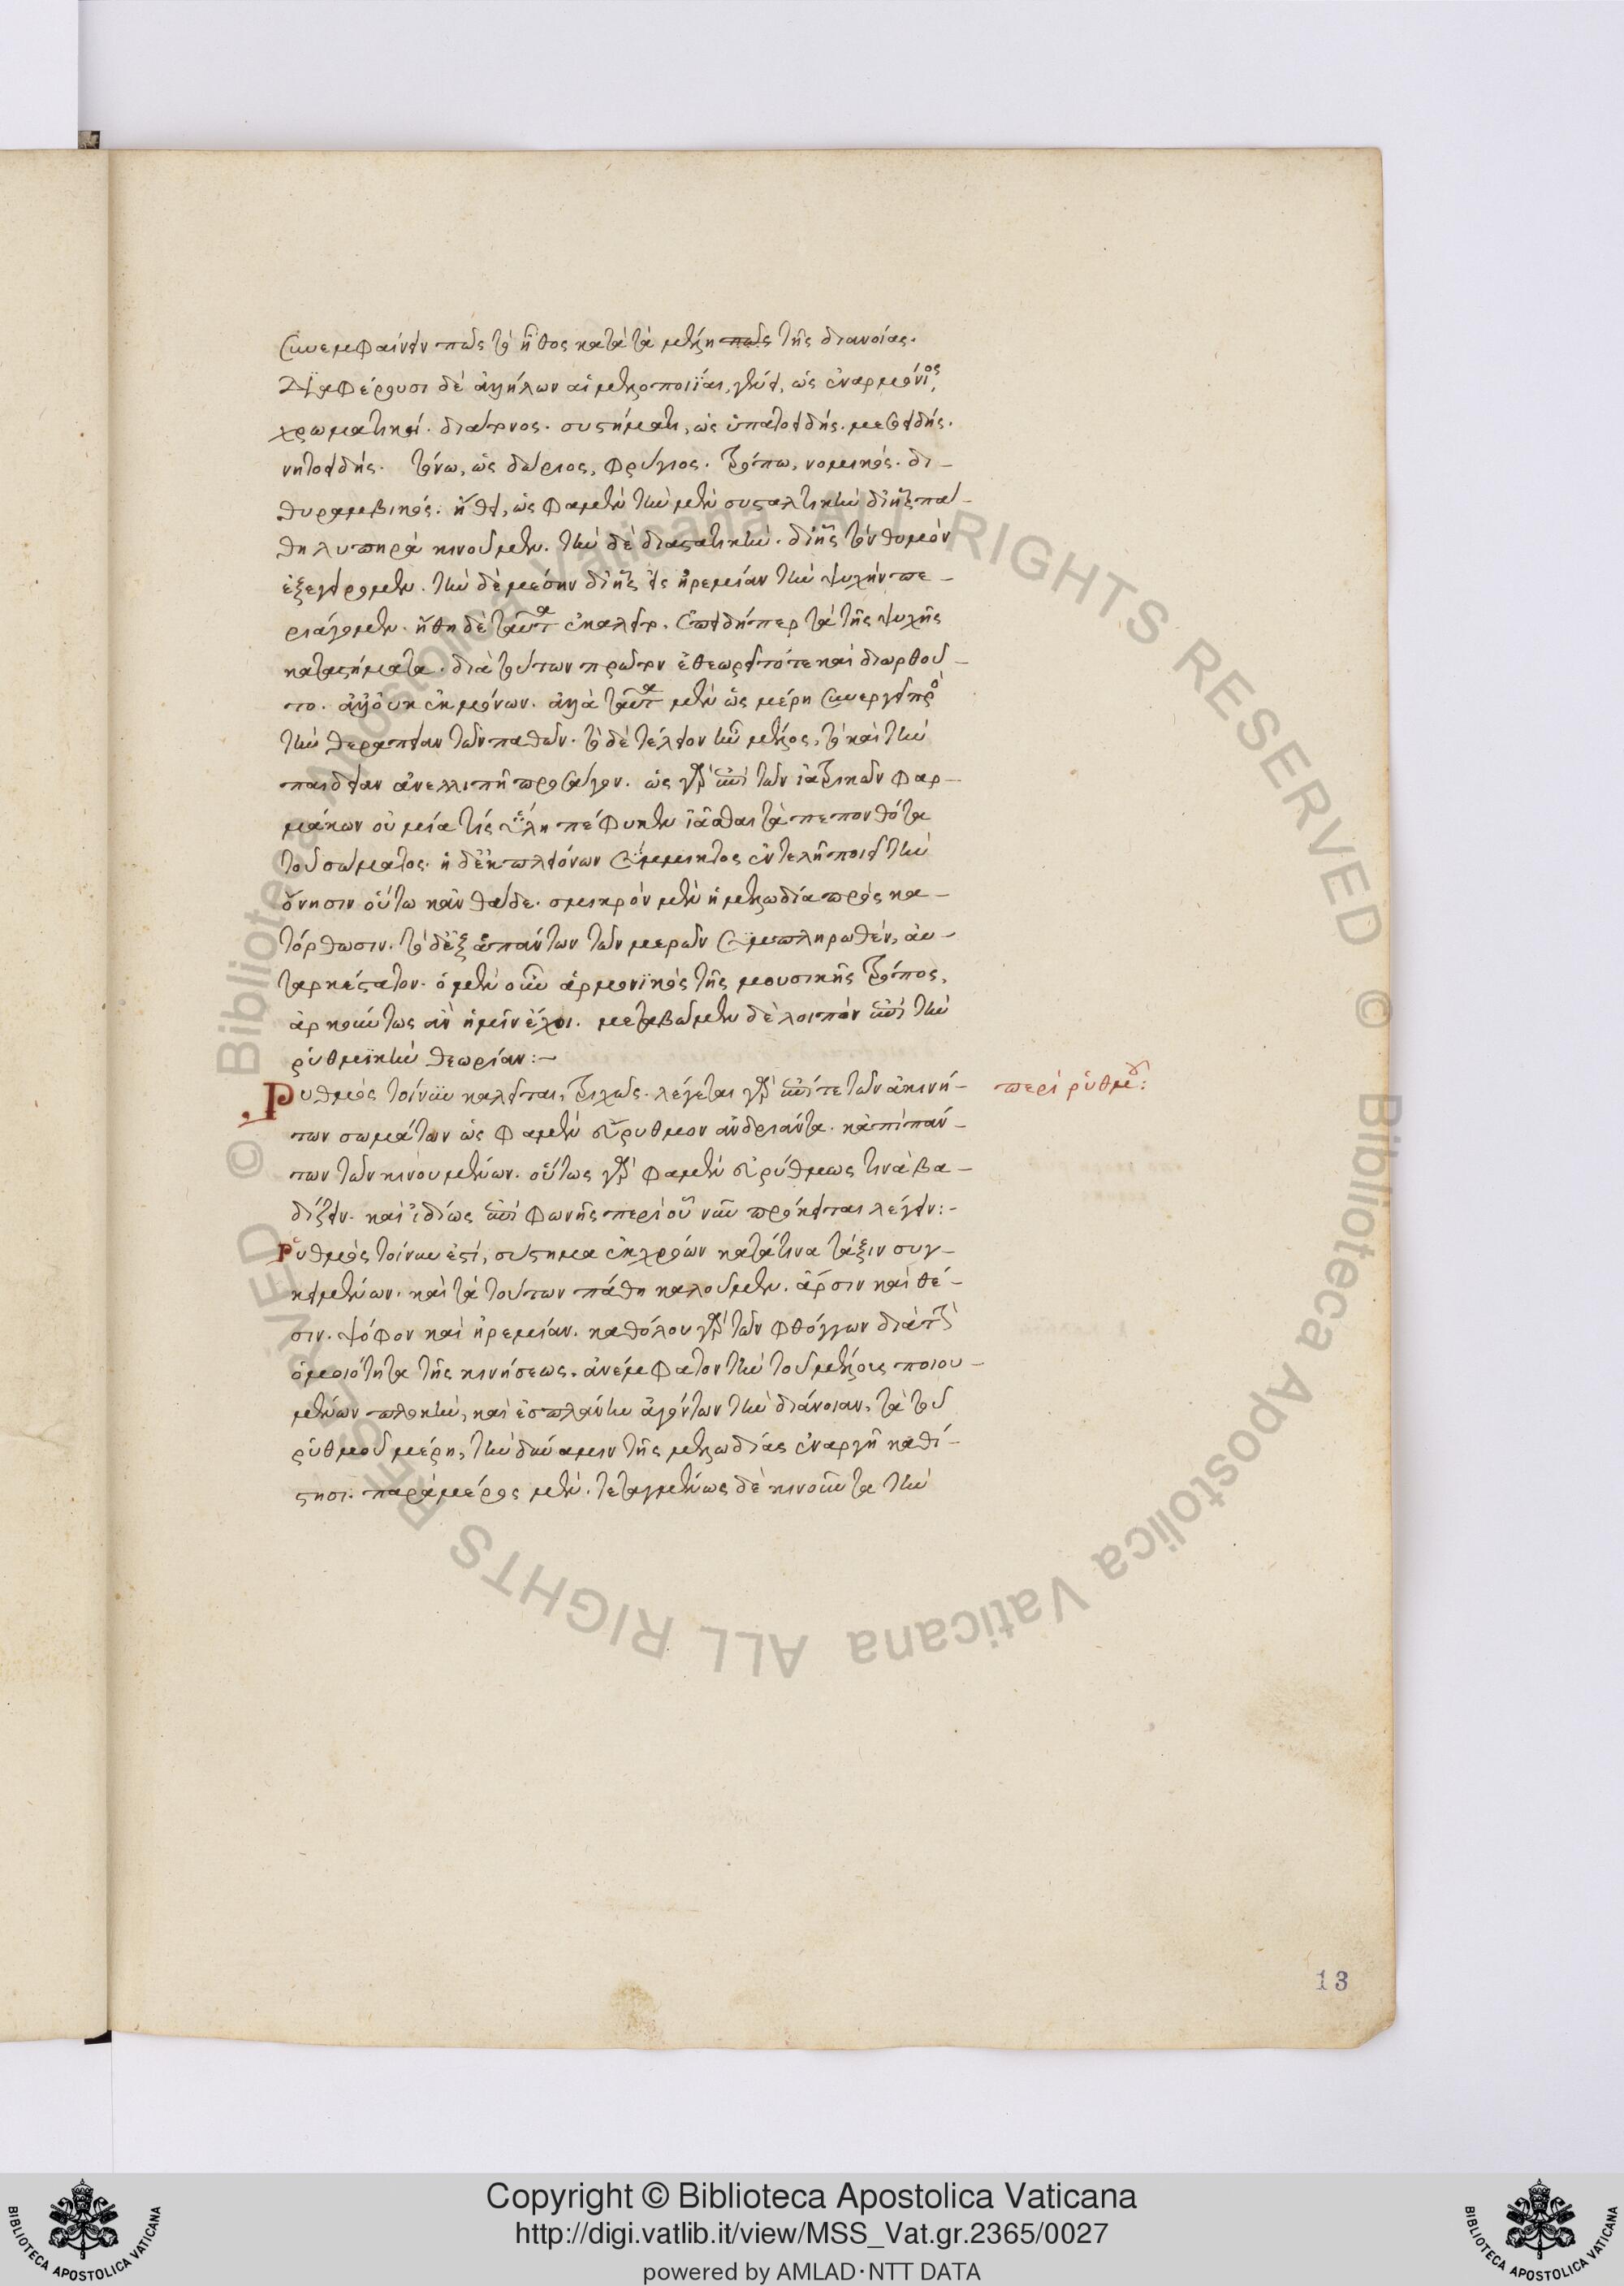 συνεμφαίνειν πως τὸ ἦθος κατὰ τὰ μέλη πως τῆς διανοίας.
Διαφέρουσι δὲ ἀλλήλων αἱ μελοποιΐαι, γένει, ὡς ἐναρμόνιος,
χρωματική. διάτονος. συστήματι, ὡς ὑπατοειδής. μεσοειδής.
νητοειδής. τόνω, ὡς δώριος, φρύγιος. τρόπω, νομικός. δι-
θυραμβικός. ἤθει, ὡς φαμὲν τὴν μὲν συσταλτικὴν δι' ἧς πά-
θη λυπηρὰ κινοῦμεν. τὴν δὲ διασταλτικὴν. δι' ἧς τὸν θυμὸν
ἐξεγείρομεν. τὴν δὲ μέσην δι' ἧς εἰς ἠρεμίαν τὴν ψυχὴν πε-
ριάγομεν. ἤθη δὲ ταῦτα ἐκαλεῖτο. ἐπειδήπερ τὰ τῆς ψυχῆς
καταστήματα. διὰ τούτων πρῶτον ἐθεωρεῖτό τε καὶ διωρθοῦ-
το. ἀλλ' οὐκ ἐκ μόνων. ἀλλὰ ταῦτα μὲν ὡς μέρη συνεργεῖ πρὸς
τὴν θεραπείαν τῶν παθῶν. τὸ δὲ τέλειον ἦν μέλος, τὸ καὶ τὴν
παιδείαν ἀνελλιπῆ προσάγον. ὡς γὰρ ἐπὶ τῶν ἰατρικῶν φαρ-
μάκων οὐ μία τὶς ὕλη πέφυκεν ἰᾶσθαι τὰ πεπονθότα
τοῦ σώματος. ἡ δὲ ἐκ πλειόνων σύμμικτος ἐντελῆ ποιεῖ τὴν
ὄνησιν οὕτω κἀνθάδε. σμικρὸν μὲν ἡ μελωδία πρὸς κα-
τόρθωσιν. τὸ δὲ ἐξ ἁπάντων τῶν μερῶν συμπληρωθέν, αὐ-
ταρκέστατον. ὁ μὲν οὖν ἁρμονϊκὸς τῆς μουσικῆς τρόπος,
ἀρκούντως ἂν ἡμῖν ἔχοι. μεταβῶμεν δὲ λοιπὸν ἐπὶ τὴν
ῥυθμϊκὴν θεωρίαν:-
Ρυθμὸς τοίνυν καλεῖται, τριχῶς. λέγεται γὰρ ἐπί τε τῶν ἀκινή-
των σωμάτων ὡς φαμὲν εὔρυθμον ἀνδριάντα. κἀπὶ πάν-
των τῶν κινουμένων. οὕτως γὰρ φαμὲν εὐρύθμως τινὰ βα-
δίζειν. καὶ ἰδίως ἐπὶ φωνῆς περὶ οὗ νῦν πρόκειται λέγειν:-
Ρυθμὸς τοίνυν ἐστί, σύστημα ἐκ χρόνων κατά τινα τάξιν συγ-
κειμένων. καὶ τὰ τούτων πάθη καλοῦμεν. ἄρσιν καὶ θέ-
σιν. ψόφον καὶ ἠρεμίαν. καθόλου γὰρ τῶν φθόγγων διὰ τὴν
ὁμοιότητα τῆς κινήσεως. ἀνέμφατον τὴν τοῦ μέλους ποιου-
μένων πλοκὴν, καὶ ἐς πλάνην ἀγόντων τὴν διάνοιαν, τὰ τοῦ
ῥυθμοῦ μέρη, τὴν δύναμιν τῆς μελωδίας ἐναργῆ καθί-
στησι. παρὰ μέρος μὲν. τεταγμένως δὲ κινοῦντα τὴν
περὶ ῥυθμοῦ:
13
Copyright © Biblioteca Apostolica Vaticana
http://digi.vatlib.it/view/MSS_Vat.gr.2365/0027
powered by AMLAD·NTT DATA